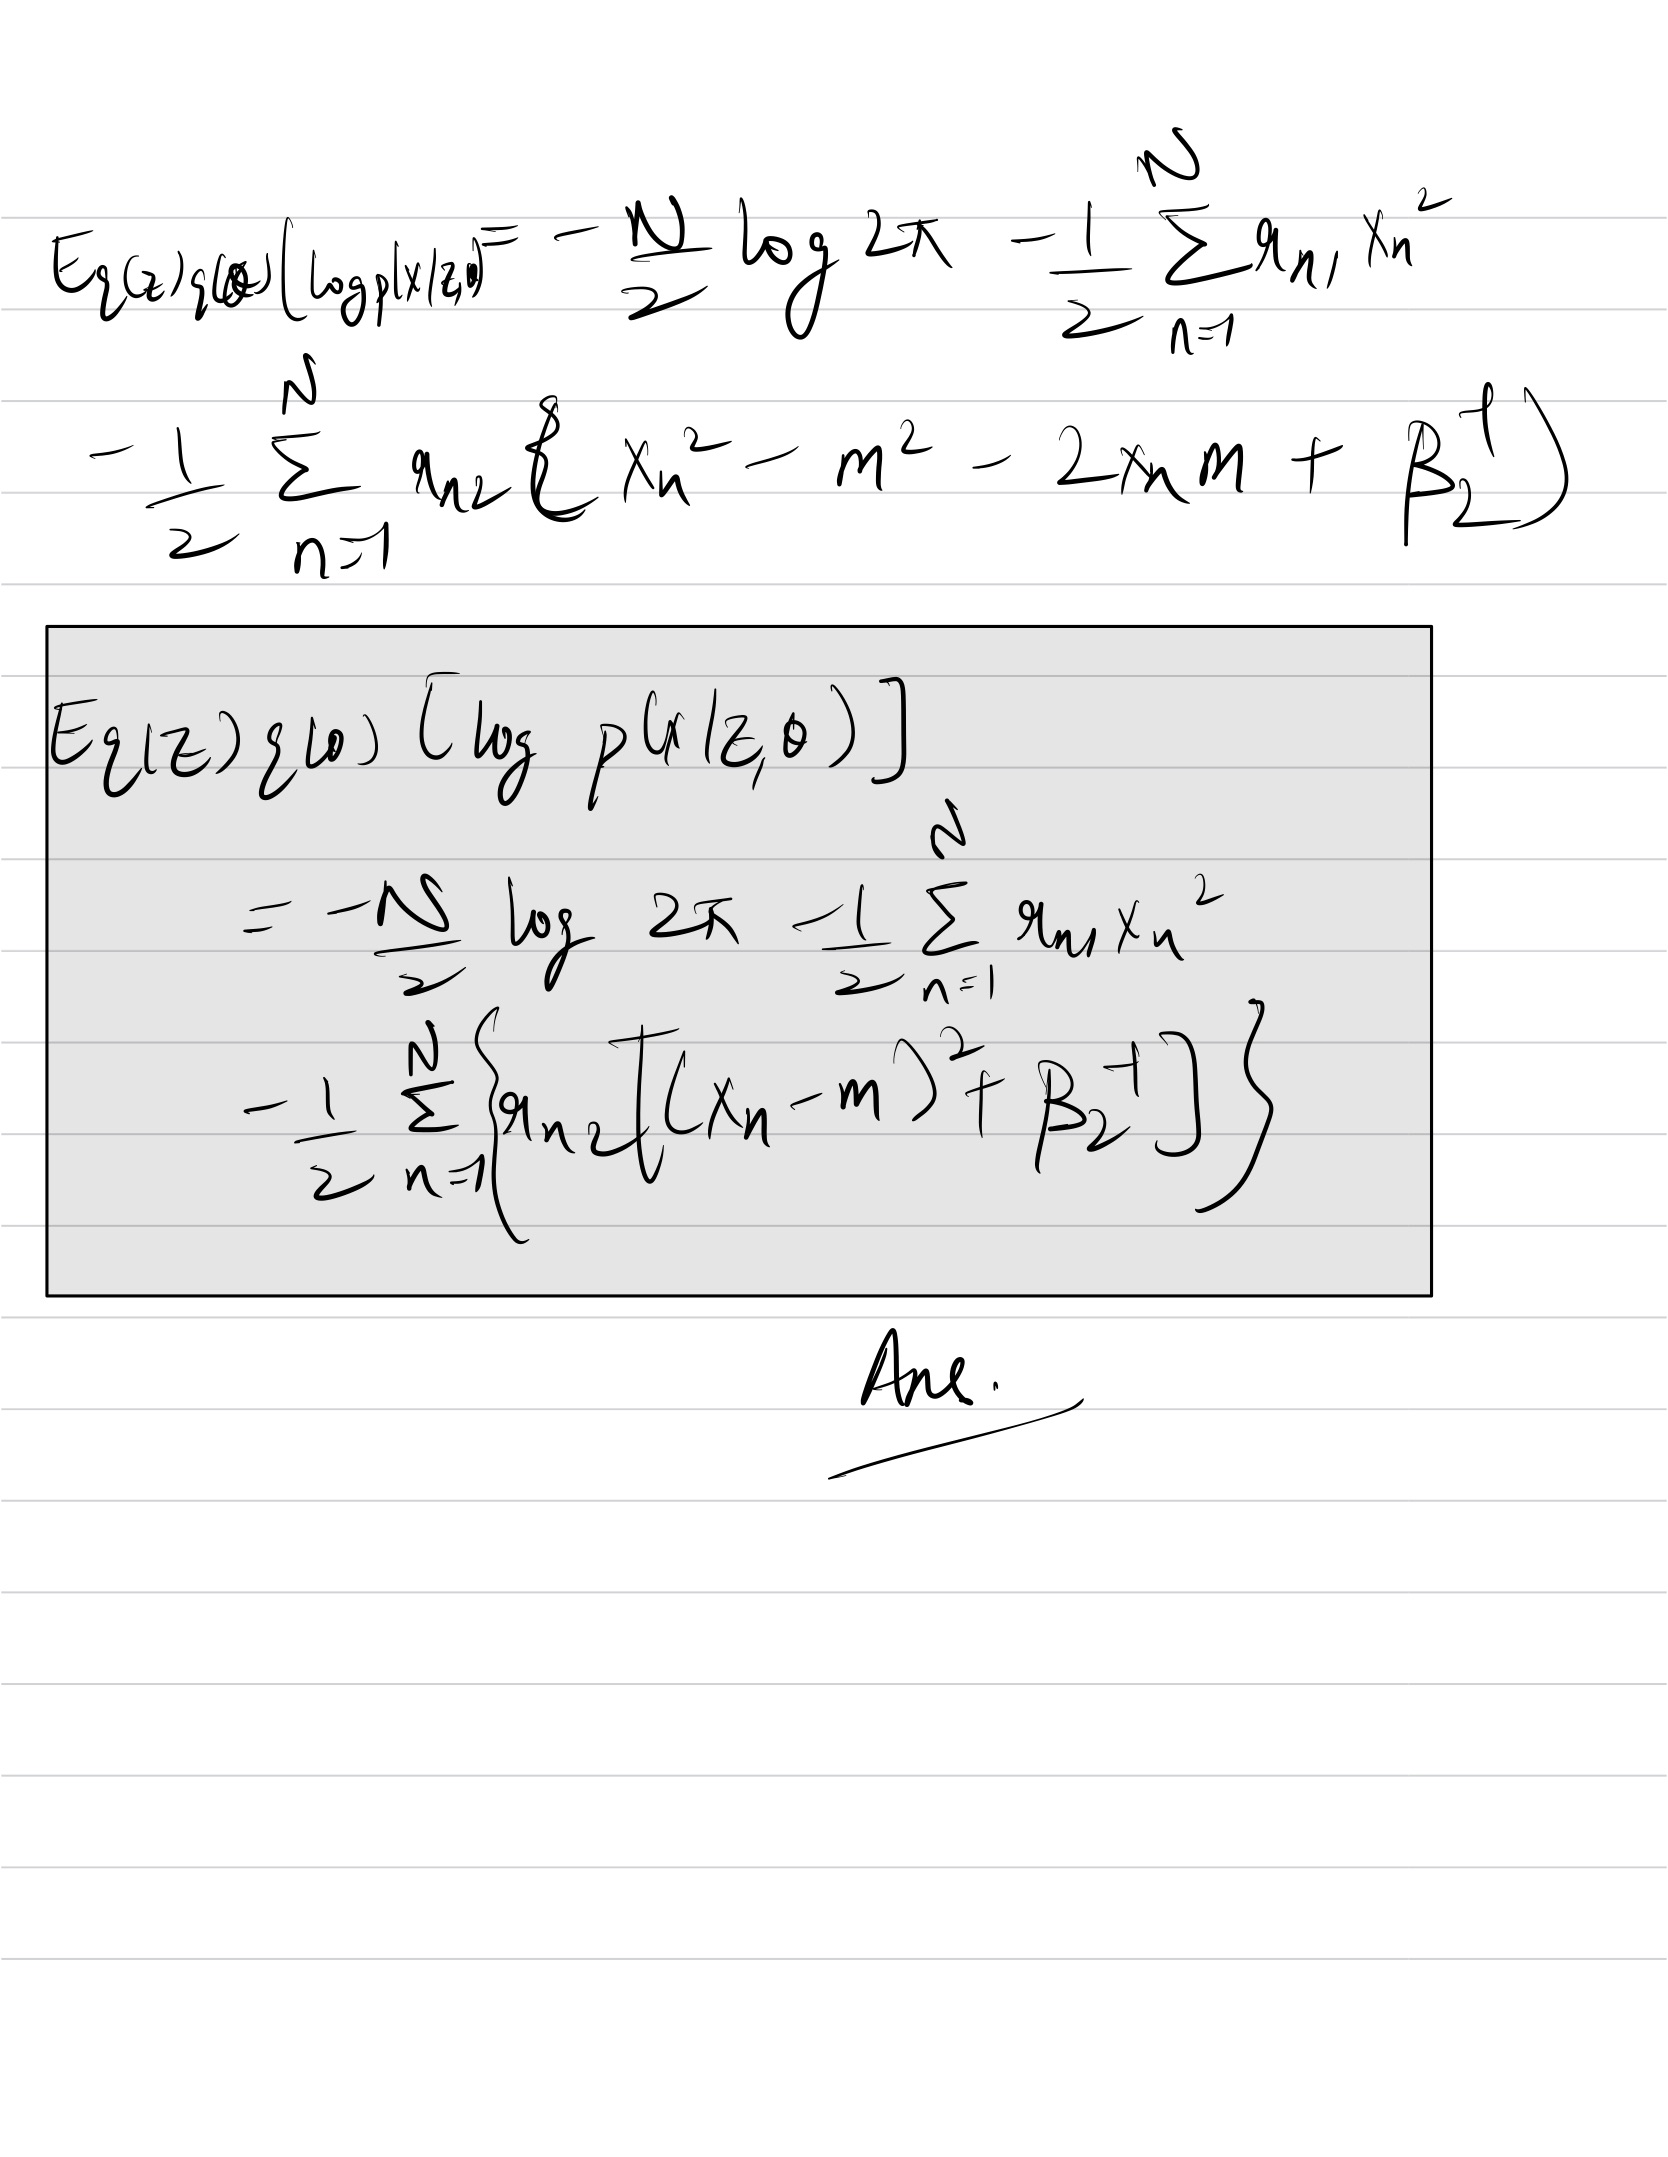 E_{q(z)q(θ)}[log p(x/z,θ) = -N/2 log 2π - 1/2 Σ_{n=1}^{N} r_{n1} x_n^2
- 1/2 Σ_{n=1}^{N} r_{n2} { x_n^2 - m^2 - 2x_n m + β_2^{-1} )
E_{q(z)q(θ)} [log p(x/z,θ)]
= -N/2 log 2π - 1/2 Σ_{n=1}^{N} r_{n1} x_n^2
- 1/2 Σ_{n=1}^{N} { r_{n2} [(x_n - m)^2 + β_2^{-1}] }
Ans.